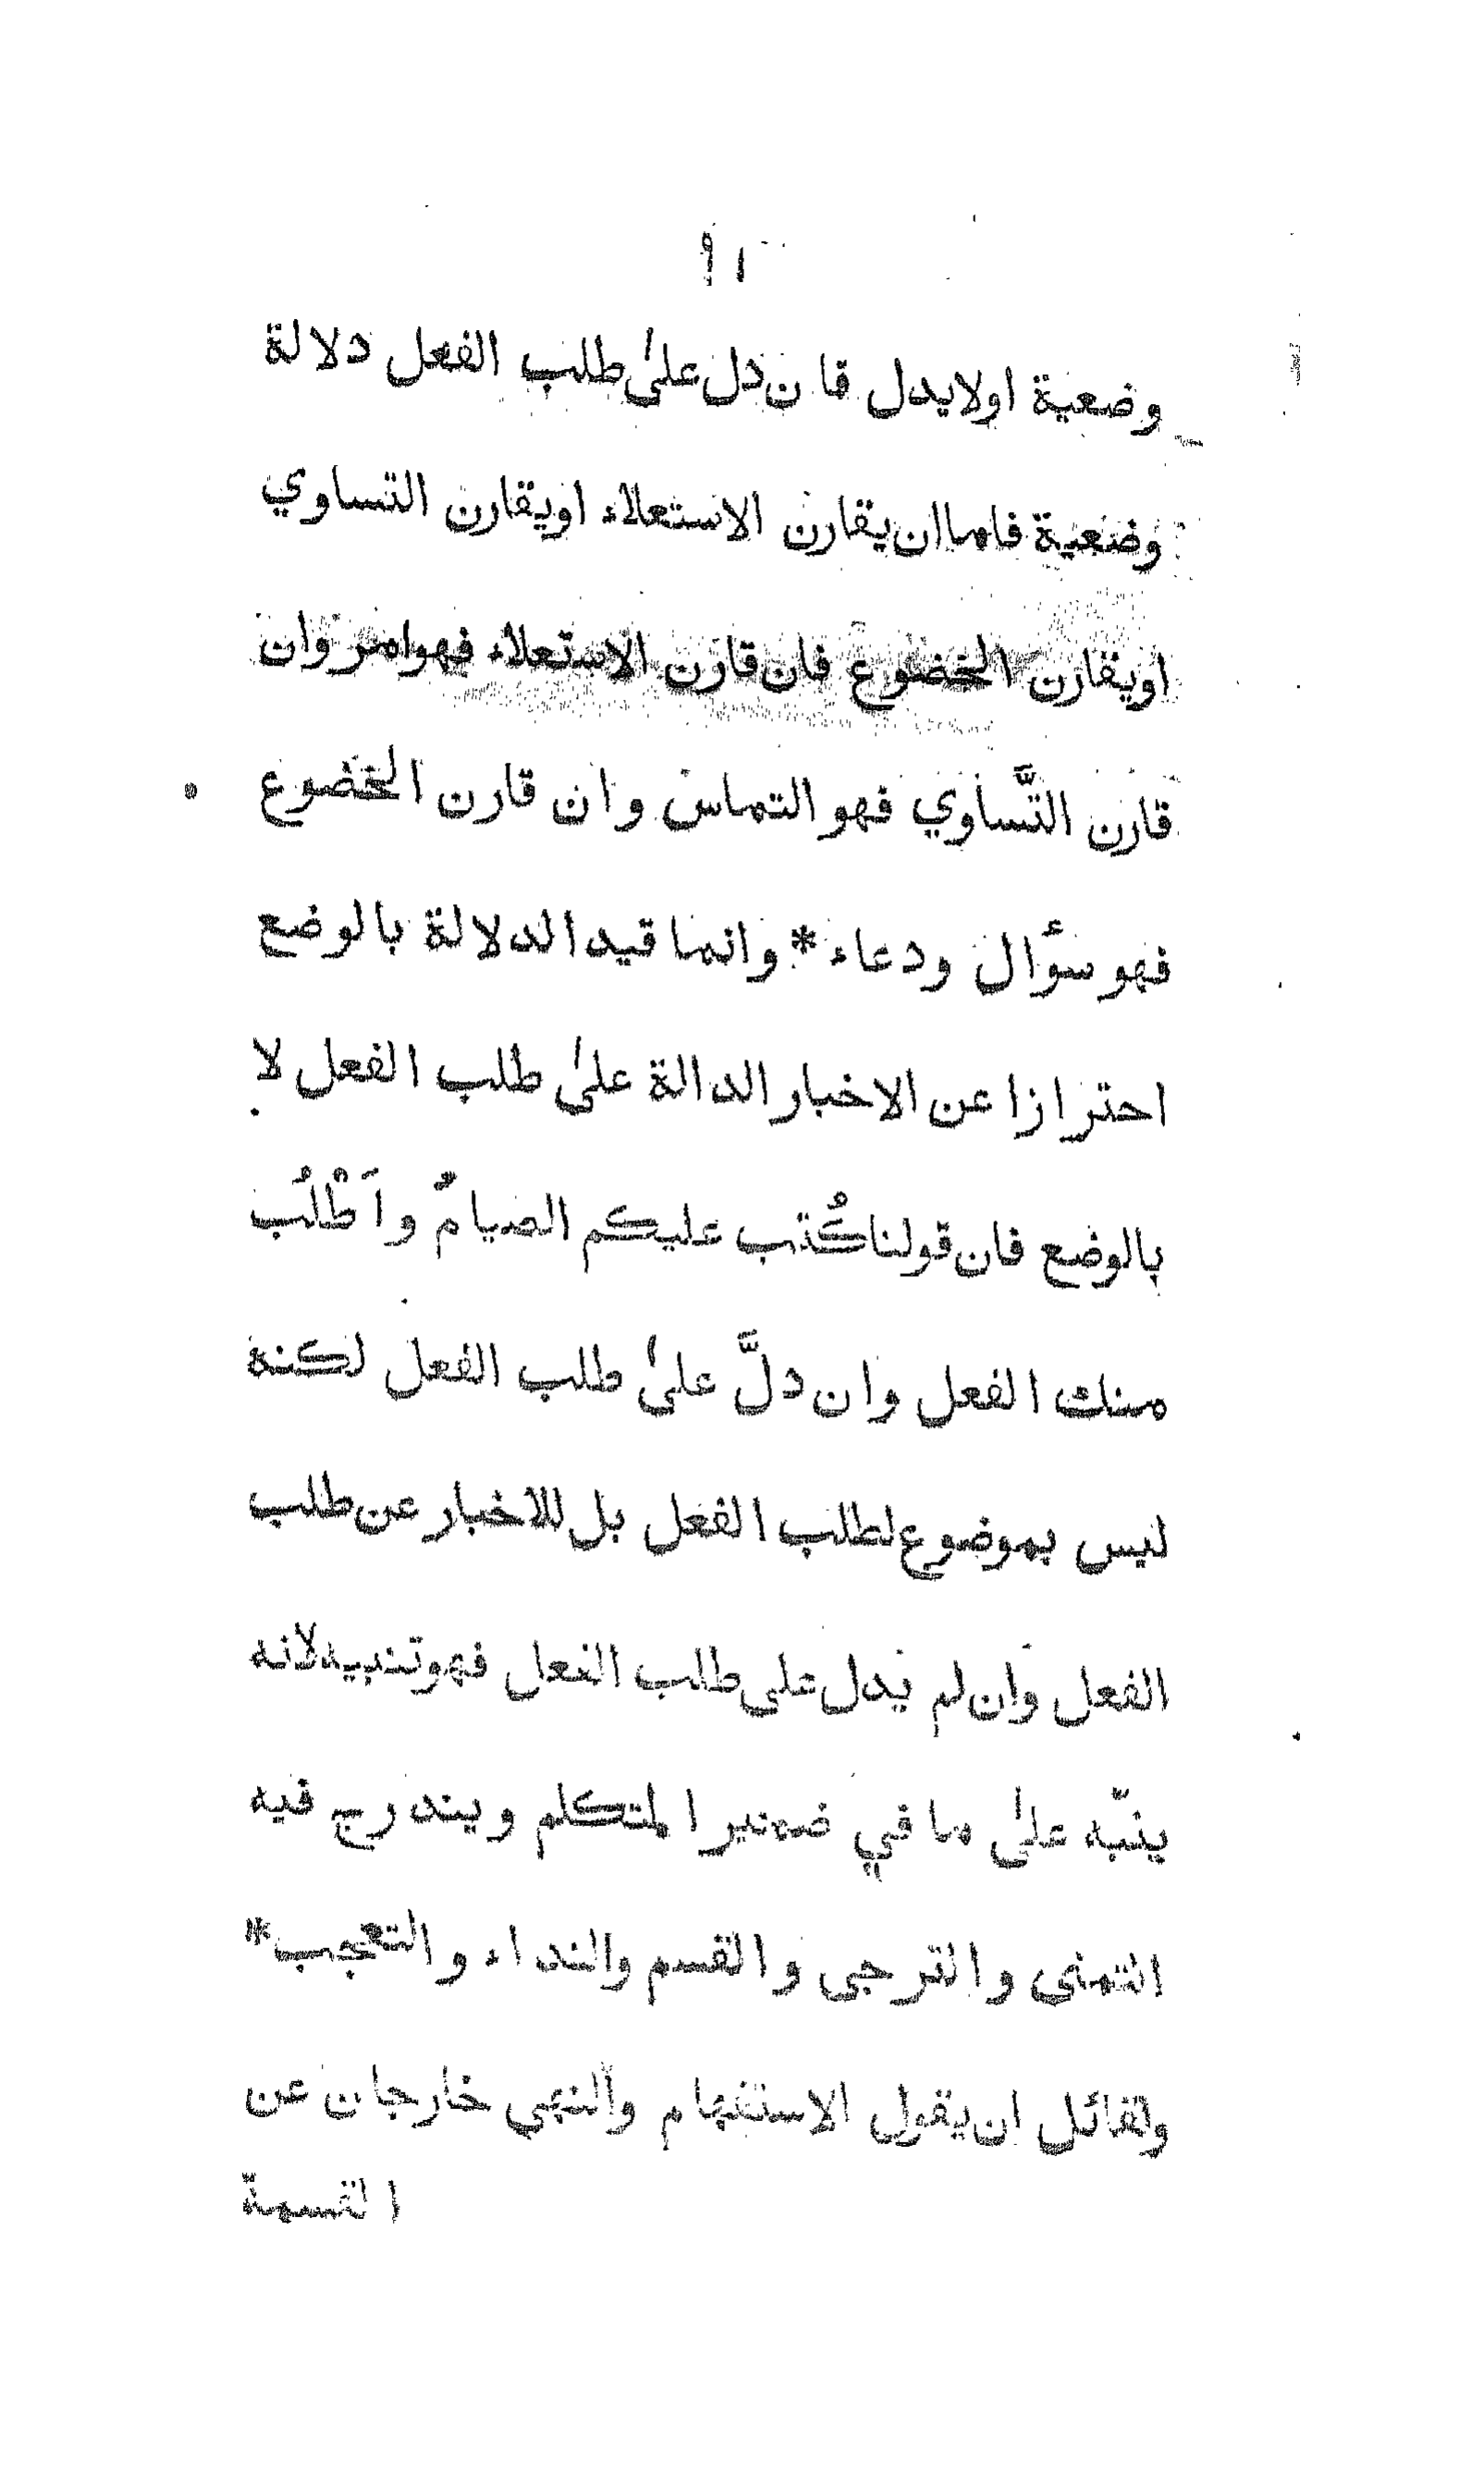 ٩١
وضعية اولايدل فان دل علىٰ طلب الفعل دلالة
وضعية فاما ان يقارن الاستعلاء اويقارن التساوي
اويقارن الخضوع فان قارن الاستعلاء فهوامر وان
قارن التَّساوي فهو التماس وان قارن الخضوع
فهو سؤال ودعاء * وانما قيد الدلالة بالوضع
احترازا عن الاخبار الدالة علىٰ طلب الفعل لا
بالوضع فان قولنا كُتب عليكم الصيامُ واَطْلُب
منك الفعل وان دلَّ علىٰ طلب الفعل لكنه
ليس بموضوع لطلب الفعل بل للاخبار عن طلب
الفعل وان لم يدل على طلب الفعل فهوتنبيه لانه
ينبّه علىٰ ما في ضمير المتكلم ويندرج فيه
التمنى والترجى والقسم والنداء والتعجب *
ولقائل ان يقول الاستفهام والنهي خارجان عن
القسمة